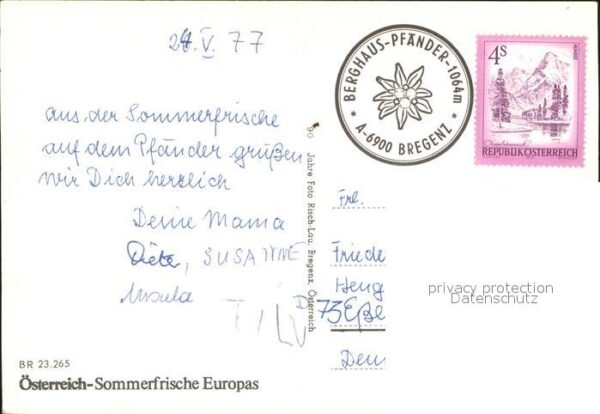 24.V.77
aus der Sommerfrische
auf dem Pfänder grüßen
wir Dich herzlich
Deine Mama
Dieter, SUSANNE
Ursula
TILL
BR 23.265
Österreich-Sommerfrische Europas
90 Jahre Foto Risch-Lau, Bregenz, Österreich
* BERGHAUS-PFÄNDER-1064m *
A-6900 BREGENZ
4S
REPUBLIK ÖSTERREICH
Frl.
Friede
Heng
D 73 Eße
privacy protection
Datenschutz